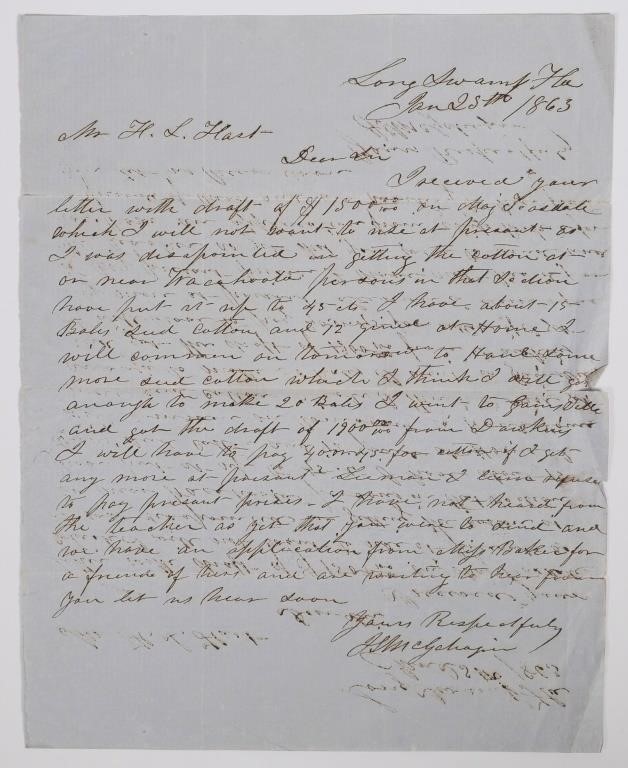 Long Swamp Fla
Jan 25th /1863
Mr H. L. Hart
Dear Sir
I received your
letter with draft of $1500.00 on Maj Teasdale
which I will not want to use at present as
I was disapointed in getting the cotton at
or near Wacahoota persons in that Section
have put it up to 45 cts I have about 15
Bales Seed Cotton and 12 gined at Home I
will commen on tomorrow to Haul some
more seed cotton which I think I will get
anough to make 20 Bales I went to Gainsville
and got the draft of 1900.00 from Dawkins
I will have to pay 40 or 45 for cotton if I get
any more at present
to pay present prices. I have not heard from
the teacher as yet that you were to send and
we have an application from Miss Baker for
a friend of hers and are waiting to hear from
you let us hear soon
Yours Respectfuly